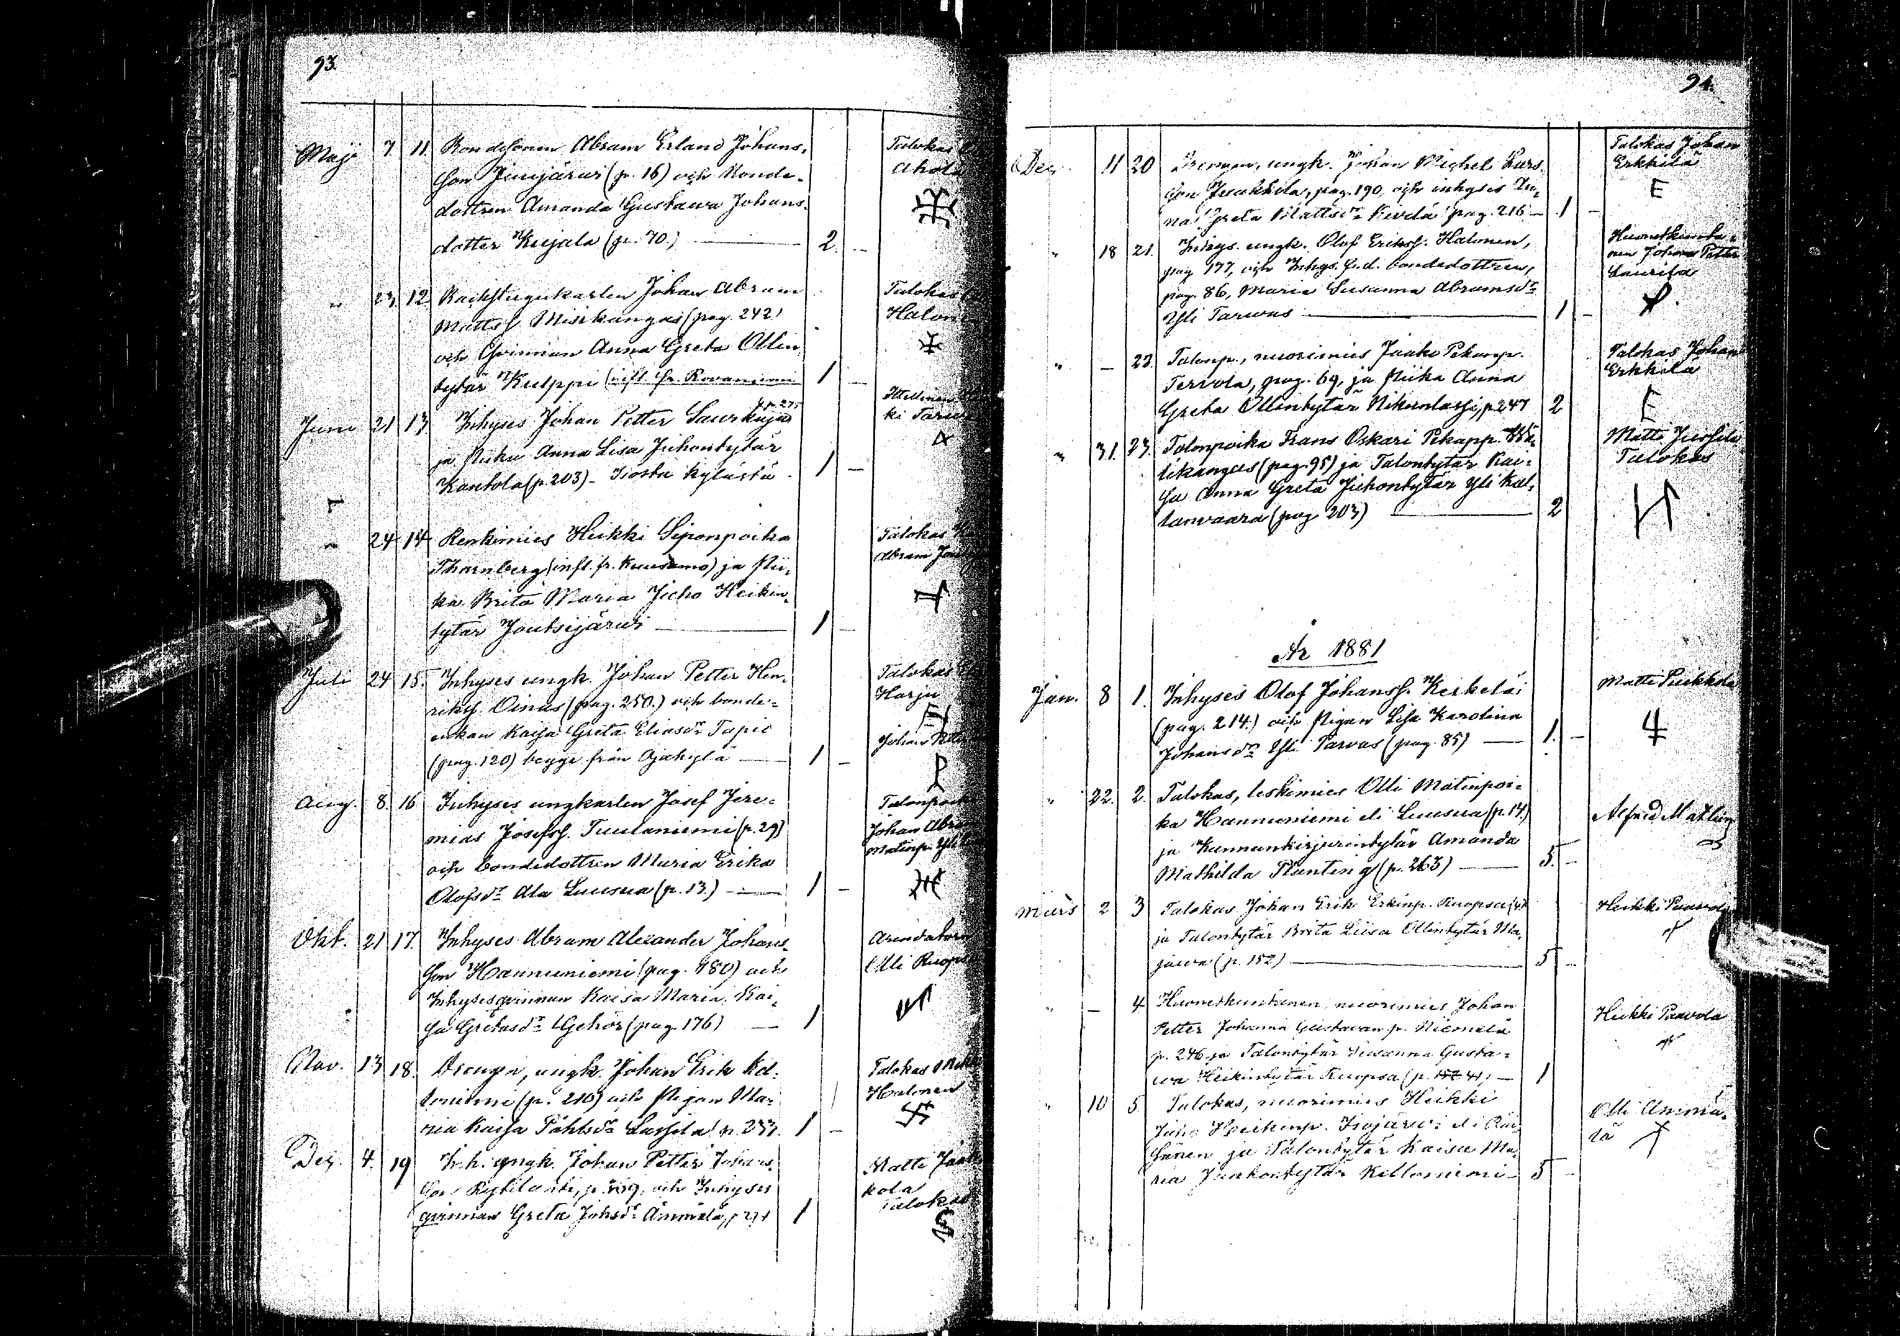 93.
Maji 7 11 Bondesonen Abram Erland Johans-
son Jumjärwi (p. 16) och bonde-
dottren Amanda Gustawa Johans-
dotter Kujala (p. 70.) 2. Talokas
Ahola
" 23. 12 Backstugukarlen Johan Abram
Mattsf. Misikangas (pag. 242)
och qvinnan Anna Greta Ollin
tytär Kulppi (infl. fr. Rovaniemi 1 Talokas
Halonen
Juni 21 13 Inhyses Johan Petter Saurkujas
ja piika Anna Lisa Juhontytär
Kantola (p. 203) - Isosta kylästä 1
ki Tarwas
" 24 14 Renkimies Heikki Siponpoika
Thornberg (infl. fr. Kuusamo) ja pii-
ka Brita Maria Juho Heikin-
tytär Joutsijärwi 1 Talokas
Abram
Juli 24 15. Inhyses ungk. Johan Petter Hen-
riksf. Oinas (pag. 250.) och bonde-
enkan Kaisa Greta Eliasdr Tapio
(pag. 120) begge från Ojakylä 1 Talokas
Harju
Johan
Aug. 8. 16 Inhyses ungkarlen Josef Jere-
mias Josefsf. Tuulaniemi (p. 29)
och bondedottren Maria Erika
Olofsdr Ala Luusua (p. 13.) 1 Talonpoika
Johan
Matinp. Yli
Okt. 21 17. Inhyses Abram Alexander Johans-
son Hannuniemi (pag. 180) och
Inhysesqvinnan Kaisa Maria Kai-
sa Gretasdr Gehör (pag. 176) 1 Arendatorn
Olli Ruopsa
Nov. 13 18. Drengen, ungk. Johan Erik
(p. 210) och pigan Ma-
ria Kaisa Påhlsdr Lassila p. 237. 1 Talokas
Halonen
Dez. 4. 19 Inh. ungk. Johan Petter Johans-
son p. 109, och Inhyses
qvinnan Greta Johsdr Ämmälä, p. 271 1 Matti Jaak
kola
Talokas
94.
Dec. 11 20 Drengen, ungk. Johan Michel Lars-
son Jaakkola, pag. 190 och inhyses An-
na Greta Mattsdr Kivelä pag. 216 1 Talokas Johan
Erkkilä
E
" 18 21. Inhys. ungk. Olof Eriksf. Halonen,
pag 177, och Inhys. f.d. bondedottren,
pag. 86, Maria Susanna Abramsdr
Yli Tarwas 1
Johan Petter
Laurila
" – 22. Talonp., nuorimies Jaako Pekanp.
Tervola, pag. 69, ja piika Anna
Greta Ollintytär Nikonlassi, p. 247 2 Talokas Johan
Erkkilä
E
" 31. 23. Talonpoika Frans Oskari Pekanp.
likangas (pag. 95) ja Talontytär Kai-
sa Anna Greta Juhontytär Yli Kul-
tanvaara (pag 203) 2 Matti Jussila
Talokas
År 1881
Jan. 8 1. Inhyses Olof Johansf. Kerkelä
(pag. 214.) och pigan Lisa Karolina
Johansdr Yli Tarvas (pag. 85) 1. Matti Puikkola
" 22. 2. Talokas, leskimies Olli Matinpoi-
ka Hannuniemi eli Luusua (p. 14)
ja Kunnankirjurintytär Amanda
Mathilda Planting (p. 263) 5. Alfred
Mars 2 3 Talokas Johan Erik Erkinp. Ruopsa
ja Talontytär Brita Liisa Ollintytär Ma-
juwa (p. 152) 5 Heikki Paavola
" – 4 Huonekuntanen, nuorimies Johan
Petter Johanna Gustavan p. Niemelä
p. 246 ja Talontytär Susanna Gusta-
wa Heikintytär Ruopsa (p. 41) 1 Heikki Paavola
" 10 5. Talokas, nuorimies Heikki
Juho Heikinp. Isojärwi eli Räi-
sänen ja Talontytär Kaisa Ma-
ria Juhontytär Kelloniemi 5 Olli Ämmä-
lä